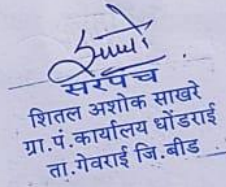 सरपंच
शितल अशोक साखरे
ग्रा.पं.कार्यालय धोंडराई
ता.गेवराई जि.बीड